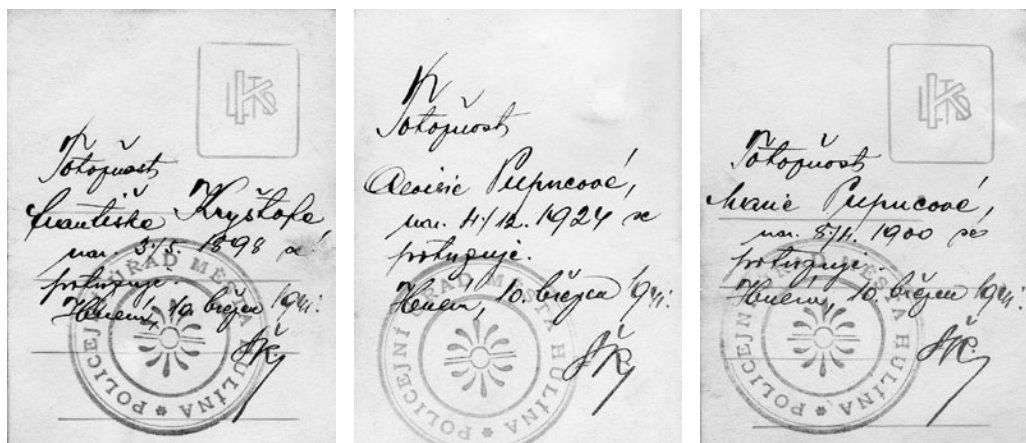 Totožnost
Františka Kryštofa
nar. 3/5. 1898 se
potvrzuje.
Hulín, 10. března 1941.
POLICEJNÍ ÚŘAD MĚSTA HULÍNA
Totožnost
Aloisie Pupncové,
nar. 4/12. 1924 se
potvrzuje.
Hulín, 10. března 1941.
POLICEJNÍ ÚŘAD MĚSTA HULÍNA
Totožnost
Marie Pupncové,
nar. 8/4. 1900 se
potvrzuje.
Hulín, 10. března 1941.
POLICEJNÍ ÚŘAD MĚSTA HULÍNA